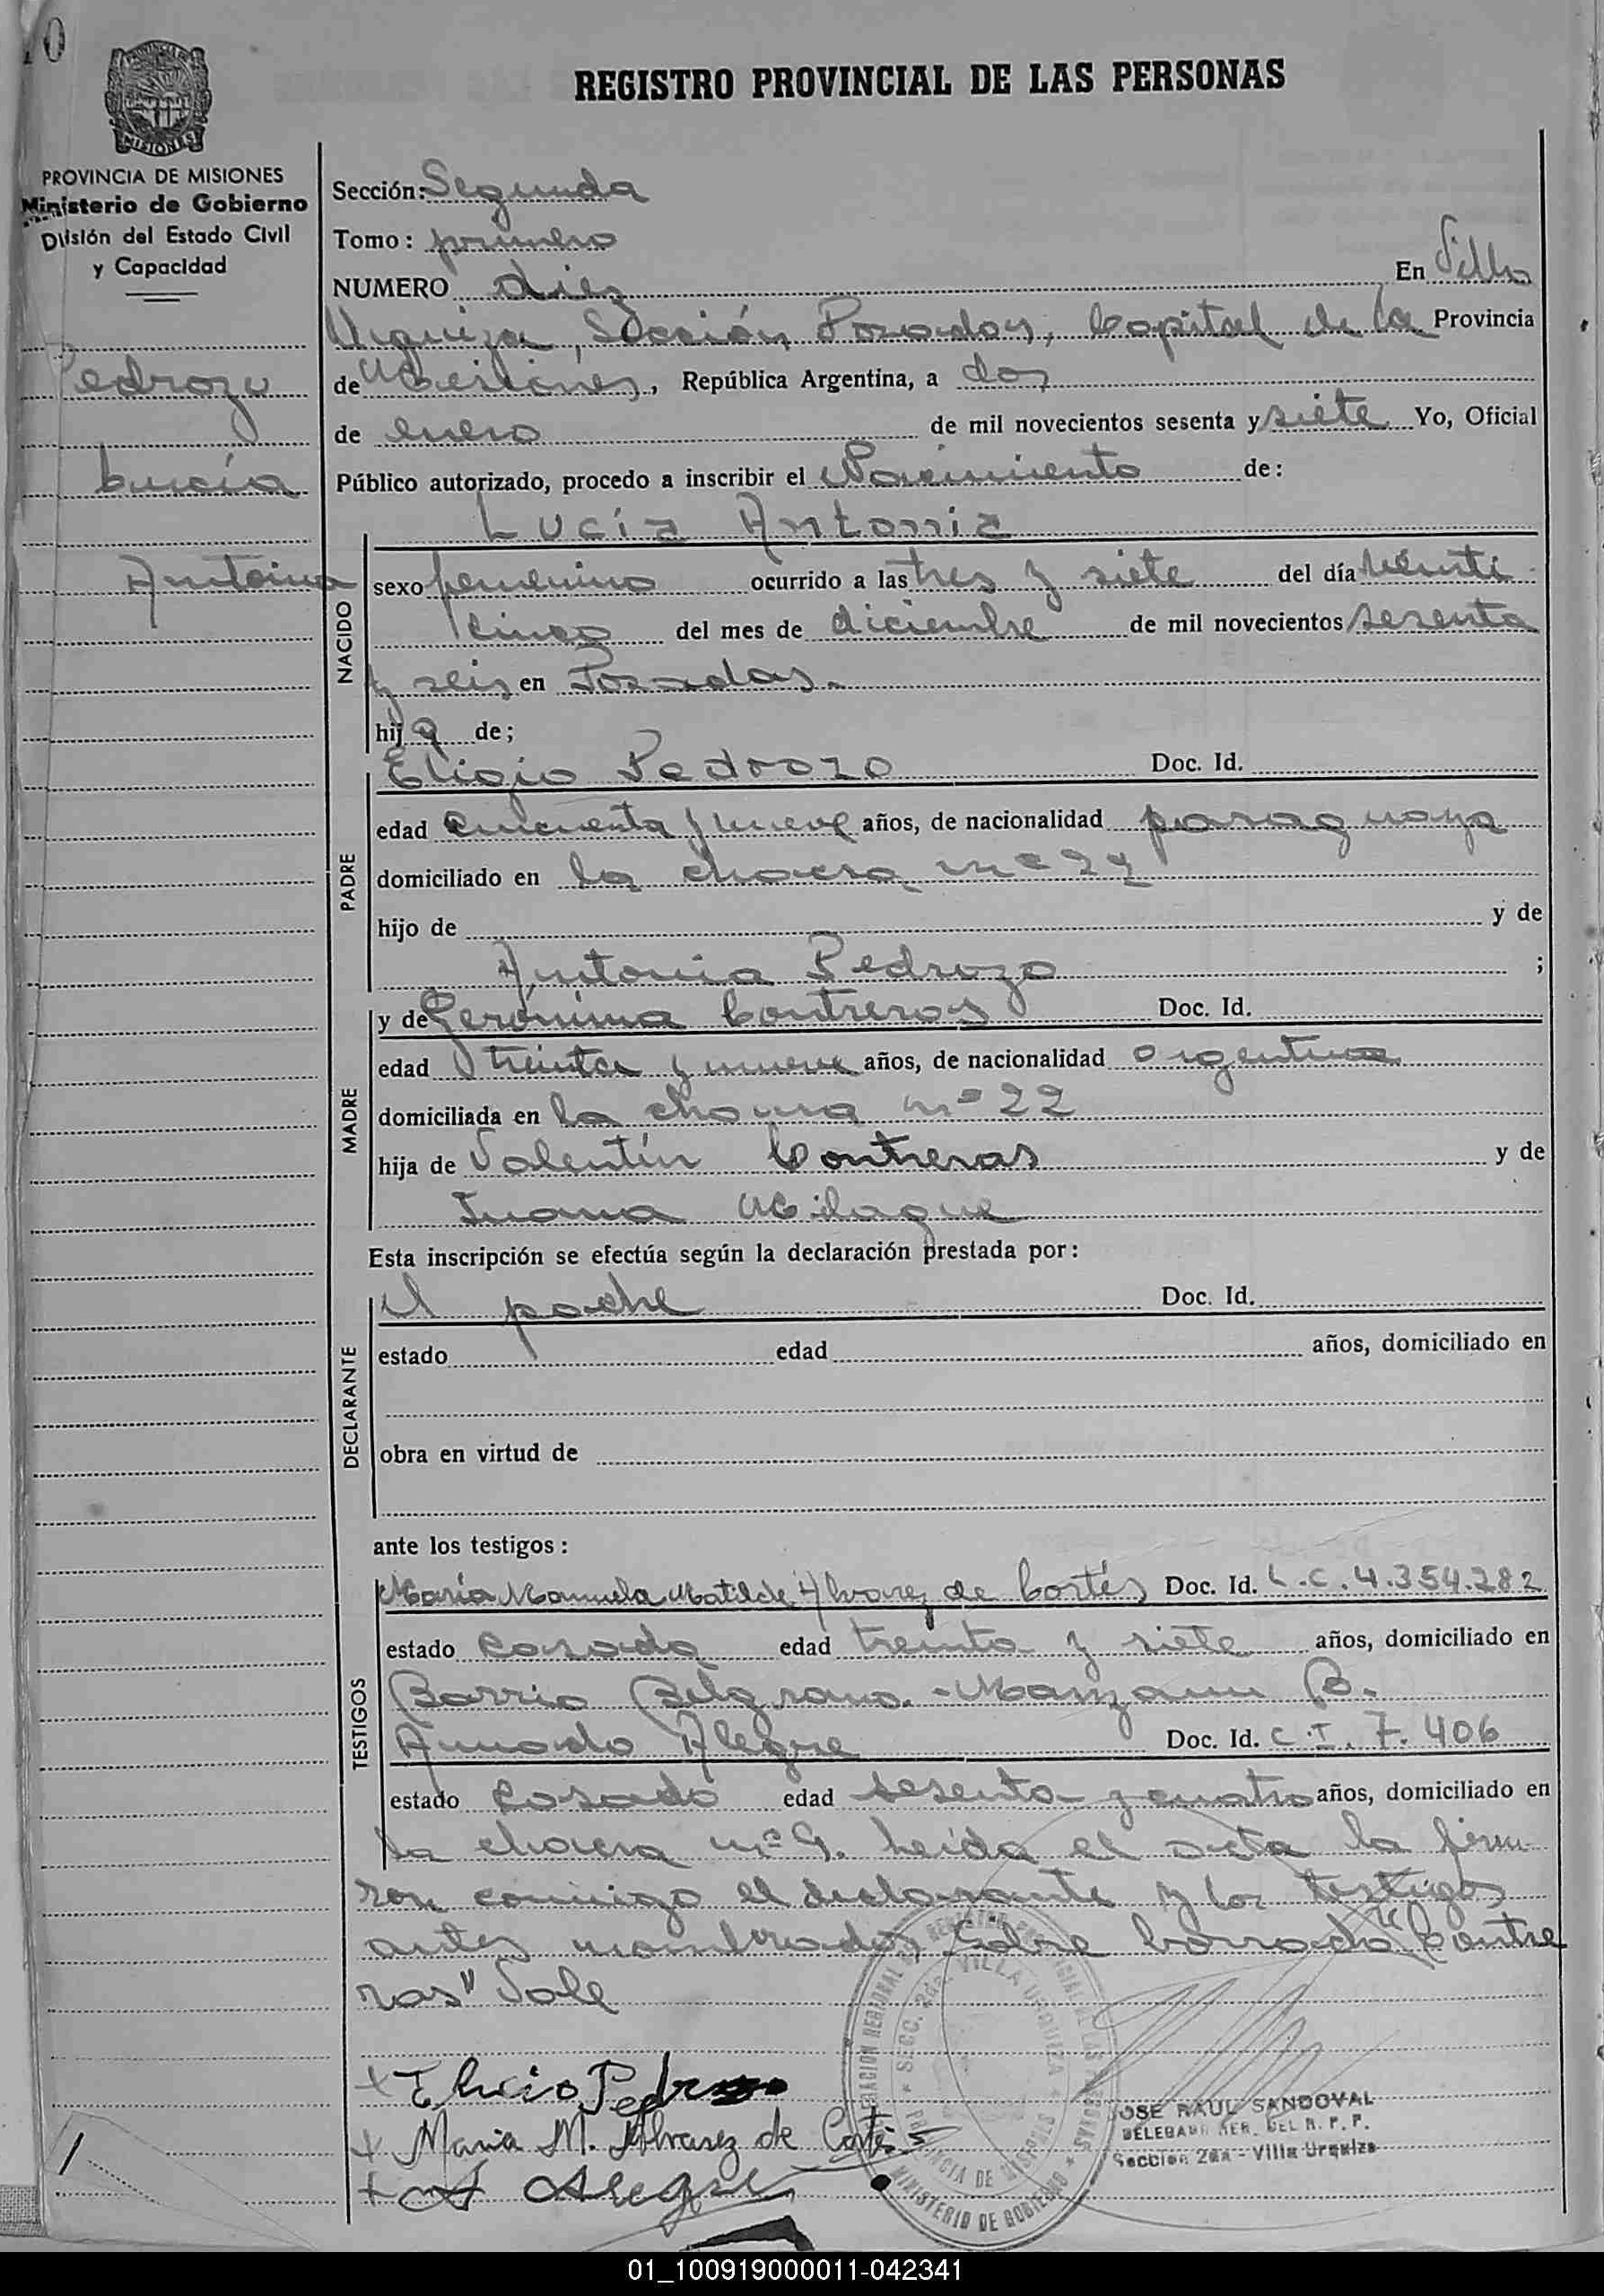 10
REGISTRO PROVINCIAL DE LAS PERSONAS
MISIONES
PROVINCIA DE MISIONES
Ministerio de Gobierno
División del Estado Civil
y Capacidad
Pedrozo
Lucía
Antonia
Sección: Segunda
Tomo: primero
NUMERO diez En Villa
Urquiza, Sección Posadas, Capital de la Provincia
de Misiones, República Argentina, a dos
de enero de mil novecientos sesenta y siete Yo, Oficial
Público autorizado, procedo a inscribir el Nacimiento de:
Lucía Antonia
NACIDO
sexo femenino ocurrido a las tres y siete del día veinti
cinco del mes de diciembre de mil novecientos sesenta
y seis en Posadas.
hija de;
PADRE
Eligio Pedrozo Doc. Id.
edad cincuenta y nueve años, de nacionalidad paraguaya
domiciliado en la chacra nº 22
hijo de y de
Antonia Pedrozo ;
MADRE
y de Gerónima Contreras Doc. Id.
edad treinta y nueve años, de nacionalidad argentina
domiciliada en la chacra nº 22
hija de Valentín Contreras y de
Juana
Esta inscripción se efectúa según la declaración prestada por:
DECLARANTE
el padre Doc. Id.
estado edad años, domiciliado en
obra en virtud de
ante los testigos:
TESTIGOS
María Manuela Matilde Alvarez de Cortés Doc. Id. L.C. 4.354.282
estado casada edad treinta y siete años, domiciliado en
Barrio Belgrano - Manzana B.
Amado Alegre Doc. Id. C.I. 7.406
estado casado edad sesenta y cuatro años, domiciliado en
la chacra nº 9. Leída el acta la firma
ron conmigo el declarante y los testigos
antes nombrados, Sobre borrado "Contre
ras" Vale
Elicio Pedrozo
Maria M. Alvarez de Cortés
A Alegre
DELEGACION REGIONAL DEL REGISTRO PROVINCIAL DE LAS PERSONAS
SECC. 2da. VILLA URQUIZA
PROVINCIA DE MISIONES
MINISTERIO DE GOBIERNO
JOSE RAUL SANDOVAL
DELEGADO REG. DEL R. P. P.
Sección 2da - Villa Urquiza
01_100919000011-042341